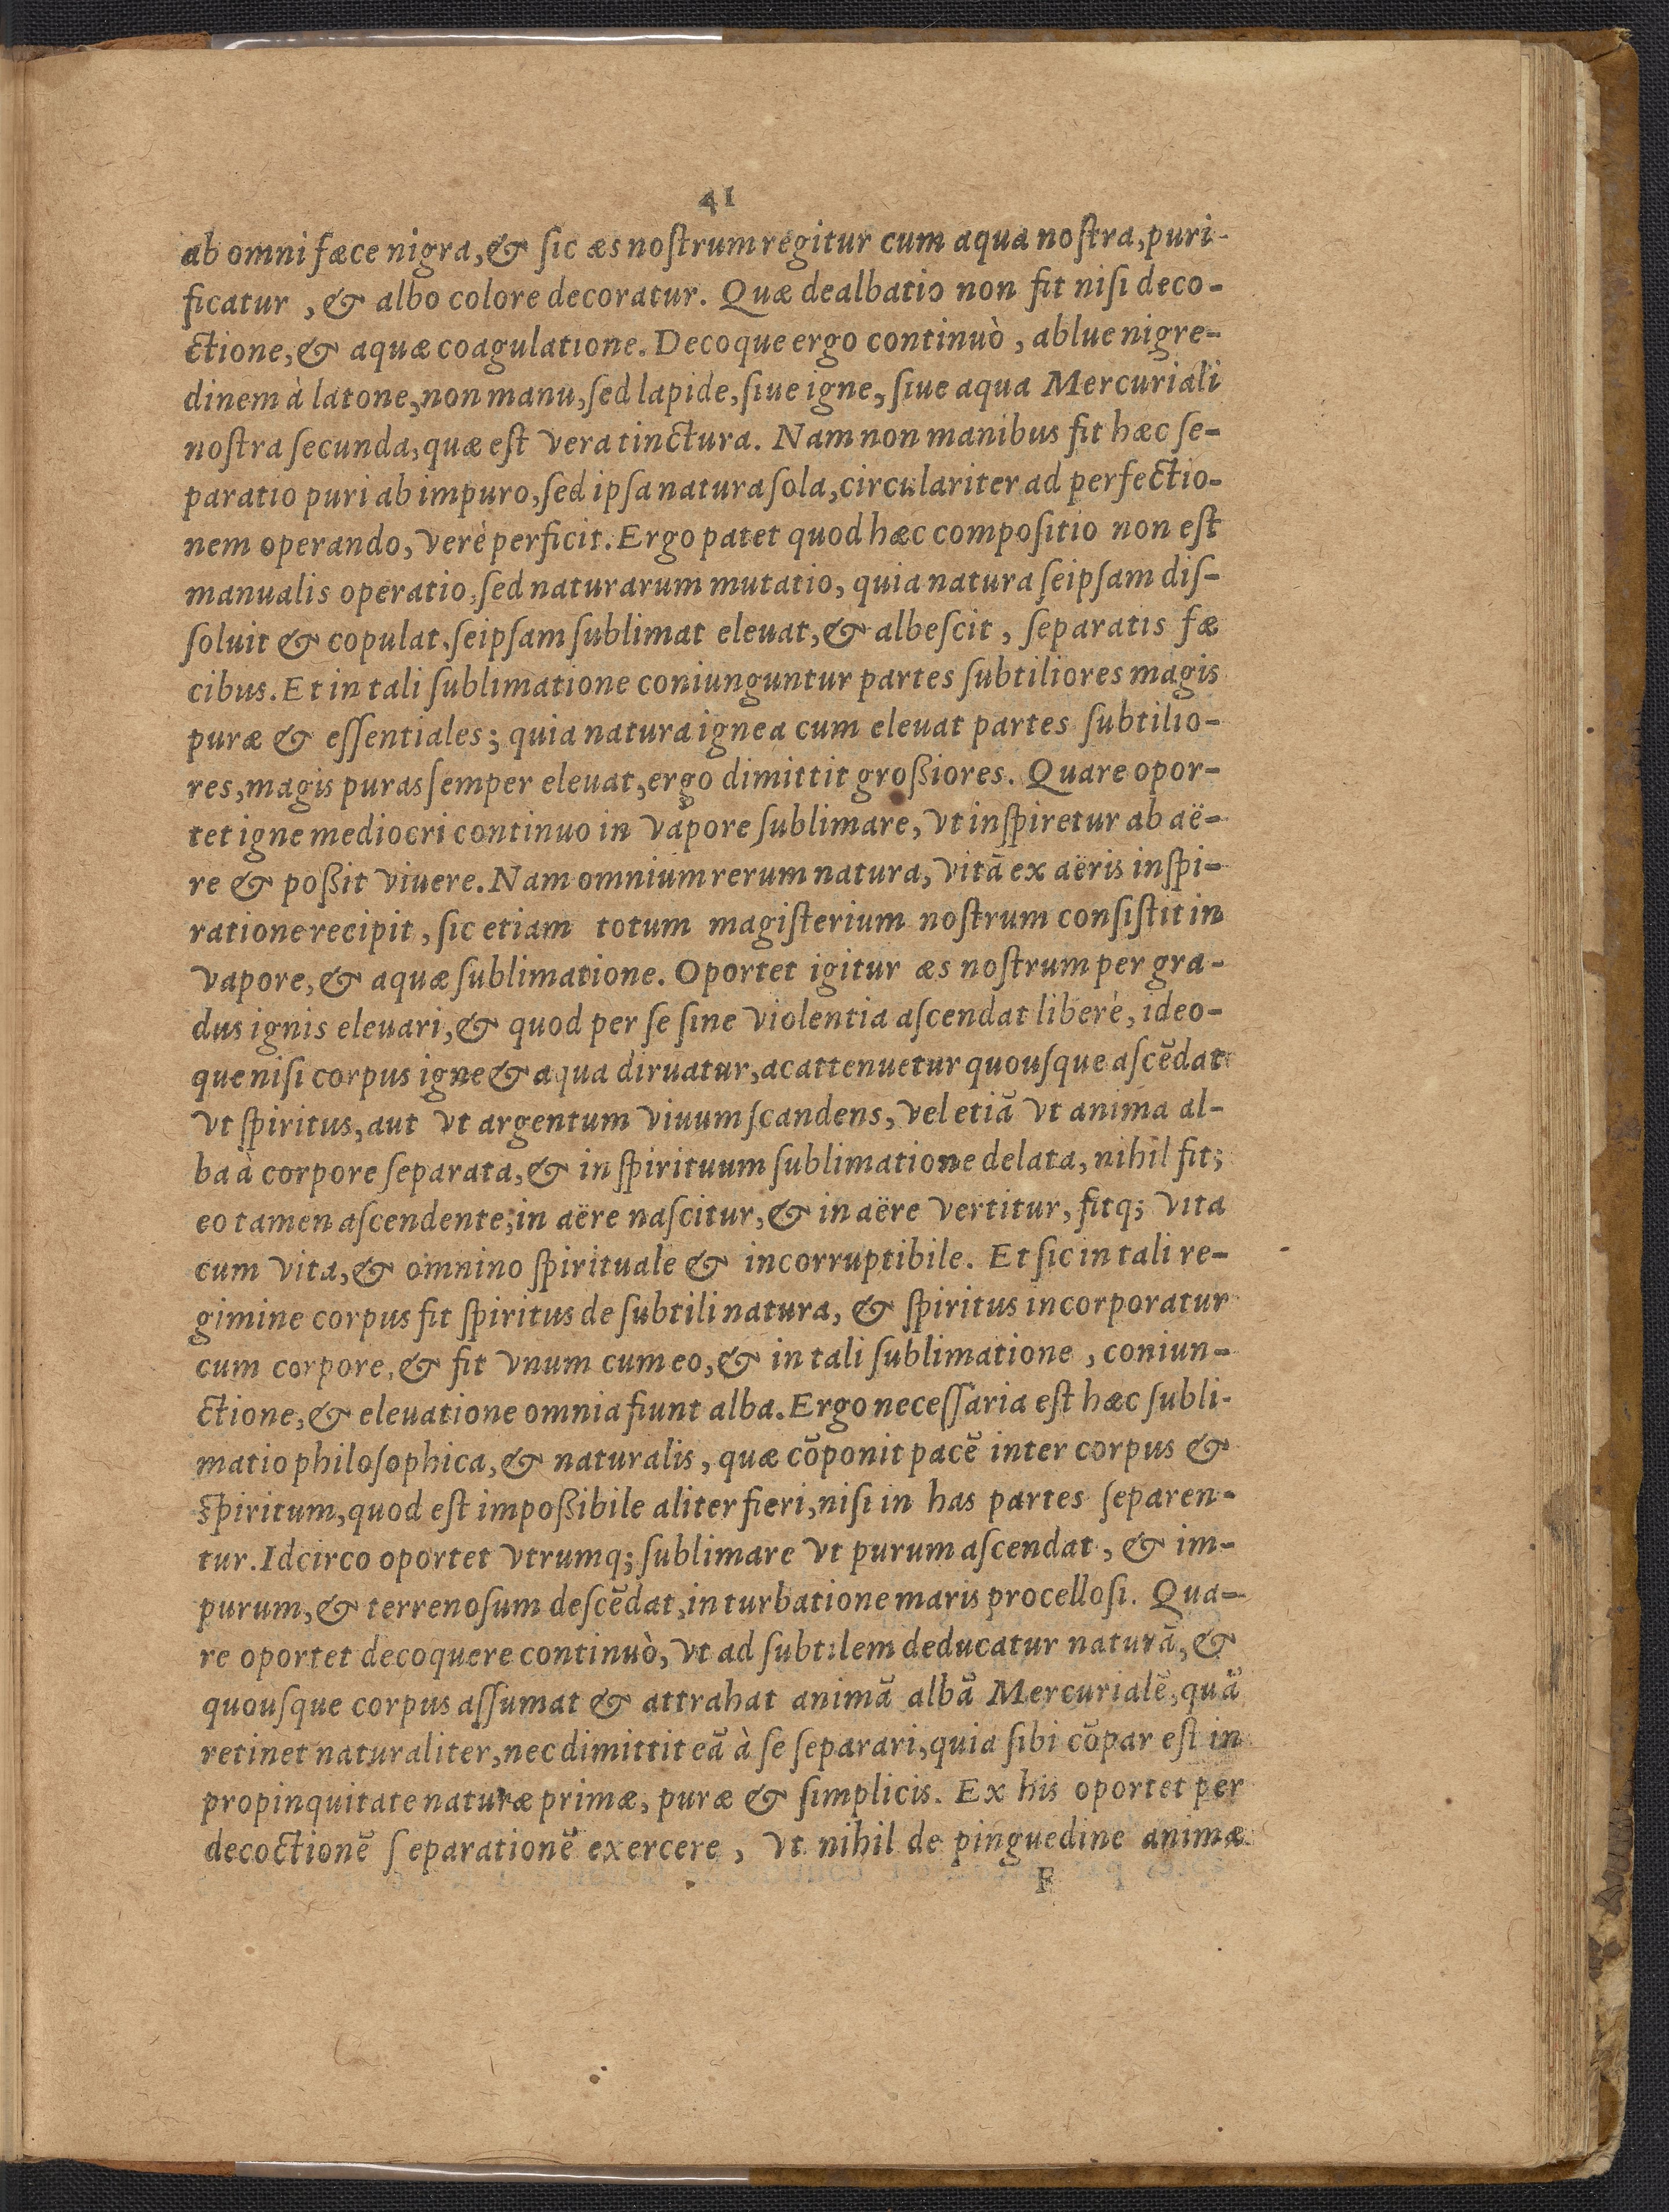 41
ab omni fæce nigra, & ſic æs noſtrum regitur cum aqua noſtra, puri-
ficatur , & albo colore decoratur. Quæ dealbatio non fit niſi deco-
ctione, & aquæ coagulatione. Decoque ergo continuò, ablue nigre-
dinem à latone, non manu, ſed lapide, ſiue igne, ſiue aqua Mercuriali
noſtra ſecunda, quæ eſt vera tinctura. Nam non manibus fit hæc ſe-
paratio puri ab impuro, ſed ipſa natura ſola, circulariter ad perfectio-
nem operando, verè perficit. Ergo patet quod hæc compoſitio non eſt
manualis operatio, ſed naturarum mutatio, quia natura ſeipſam diſ-
ſoluit & copulat, ſeipſam ſublimat eleuat, & albeſcit, ſeparatis fæ
cibus. Et in tali ſublimatione coniunguntur partes ſubtiliores magis
puræ & eſſentiales; quia natura ignea cum eleuat partes ſubtilio-
res, magis puras ſemper eleuat, ergo dimittit großiores. Quare opor-
tet igne mediocri continuo in vapore ſublimare, vt inſpiretur ab aë-
re & poßit viuere. Nam omnium rerum natura, vitã ex aëris inſpi-
ratione recipit, ſic etiam totum magiſterium noſtrum conſiſtit in
vapore, & aquæ ſublimatione. Oportet igitur æs noſtrum per gra-
dus ignis eleuari, & quod per ſe ſine violentia aſcendat liberè, ideo-
que niſi corpus igne & aqua diruatur, ac attenuetur quouſque aſcẽdat
vt ſpiritus, aut vt argentum viuum ſcandens, vel etiã vt anima al-
ba à corpore ſeparata, & in ſpirituum ſublimatione delata, nihil fit;
eo tamen aſcendente, in aëre naſcitur, & in aëre vertitur, fitq; vita
cum vita, & omnino ſpirituale & incorruptibile. Et ſic in tali re-
gimine corpus fit ſpiritus de ſubtili natura, & ſpiritus incorporatur
cum corpore, & fit vnum cum eo, & in tali ſublimatione , coniun-
ctione, & eleuatione omnia fiunt alba. Ergo neceſſaria eſt hæc ſubli-
matio philoſophica, & naturalis, quæ cõponit pacẽ inter corpus &
ſpiritum, quod eſt impoßibile aliter fieri, niſi in has partes ſeparen-
tur. Idcirco oportet vtrumq; ſublimare vt purum aſcendat, & im-
purum, & terrenoſum deſcẽdat, in turbatione maris procelloſi. Qua-
re oportet decoquere continuò, vt ad ſubtilem deducatur naturã, &
quouſque corpus aſſumat & attrahat animã albã Mercurialẽ, quã
retinet naturaliter, nec dimittit eã à ſe ſeparari, quia ſibi cõpar eſt in
propinquitate naturæ primæ, puræ & ſimplicis. Ex his oportet per
decoctionẽ ſeparationẽ exercere, vt nihil de pinguedine animæ
F